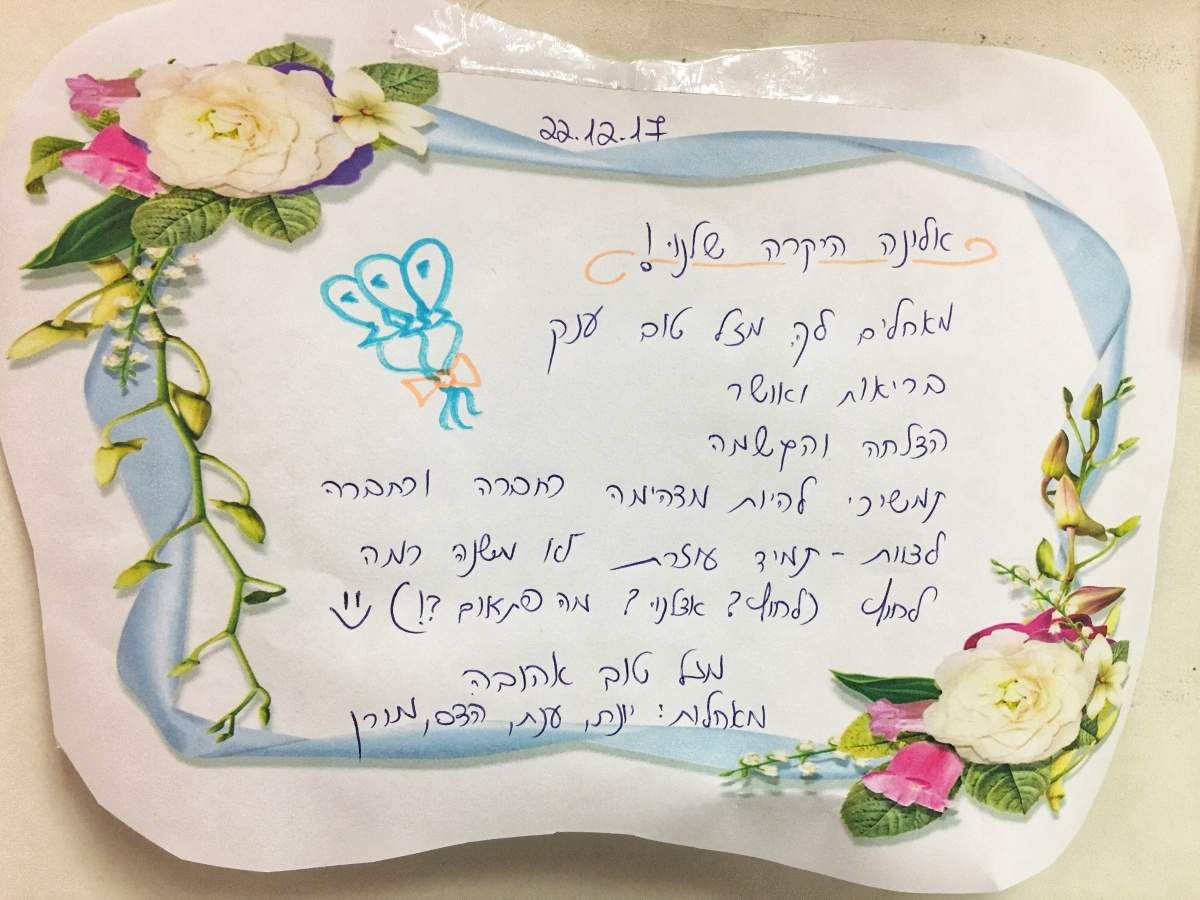 22.12.17
אלינה היקרה שלנו!
מאחלים לך מזל טוב ענק
בריאות ואושר
הצלחה והגשמה
תמשיכי להיות מדהימה כחברה וכחברה
לצוות - תמיד עוזרת לא משנה רמה
לחוץ (לחוץ? אצלנו? מה פתאום ?!)
מזל טוב אהובה
מאחלות: יונת, ענת, הדס, מורן